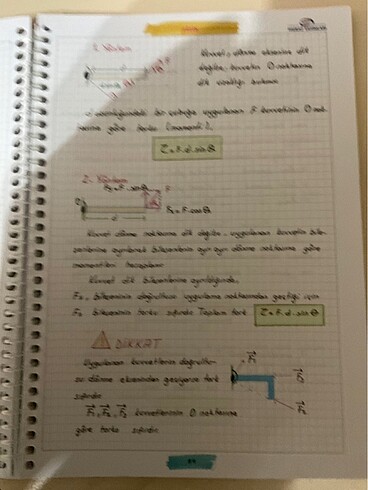 1. Yöntem
Kuvvet, dönme eksenine dik
değilse, kuvvetin O noktasına
dik uzaklığı bulunur.
d uzunluğundaki bir çubuğa uygulanan F kuvvetinin O nok-
tasına göre torku (momenti),
τ = F.d.sinθ
2. Yöntem
F
Fx = F.cosθ
d
Kuvvet dönme noktasına dik değilse, uygulanan kuvvetin bile-
şenlerine ayrılarak bileşenlerin ayrı ayrı dönme noktasına göre
momentleri hesaplanır.
Kuvvet dik bileşenlerine ayrıldığında,
Fx, bileşeninin doğrultusu uygulama noktasından geçtiği için
Fx bileşeninin torku sıfırdır. Toplam tork τ = F.d.sinθ
DİKKAT
Uygulanan kuvvetlerin doğrultu-
su dönme ekseninden geçiyorsa tork
sıfırdır.
F1, F2, F3 kuvvetlerinin O noktasına
göre torku sıfırdır.
F1
F2
F3